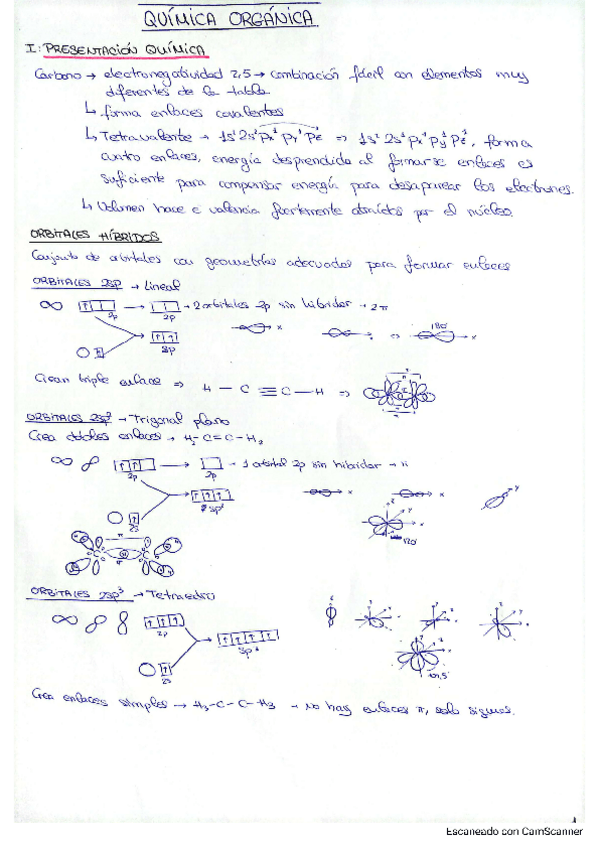 QUÍMICA ORGÁNICA
I: PRESENTACIÓN QUÍMICA
Carbono → electronegatividad 2,5 → combinación fácil con elementos muy
diferentes de la tabla
↳ forma enlaces covalentes
↳ Tetravalente → 1s² 2s² px¹ py¹ pz ⇒ 1s² 2s¹ px¹ py¹ pz¹, forma
cuatro enlaces, energía desprendida al formarse enlaces es
suficiente para compensar energía para desaparear los electrones.
↳ Volumen hace e⁻ valencia fuertemente atraídos por el núcleo.
ORBITALES HÍBRIDOS
Conjunto de orbitales con geometrías adecuadas para formar enlaces
ORBITALES 2sp → Lineal
→ 2 orbitales 2p sin hibridar → 2π
2p 2p
sp
x x 180 x
Crean triple enlace ⇒ H – C ≡ C – H ⇒
ORBITALES 2sp² → Trigonal plano
Crea dobles enlaces → H₂-C=C-H₂
→ 1 orbital 2p sin hibridar → π
2p 2p
sp²
2s
120
ORBITALES 2sp³ → Tetraedro
2p
sp³
2s
Crea enlaces simples → H₃-C-C-H₃ → No hay enlaces π, solo sigmas.
1
Escaneado con CamScanner